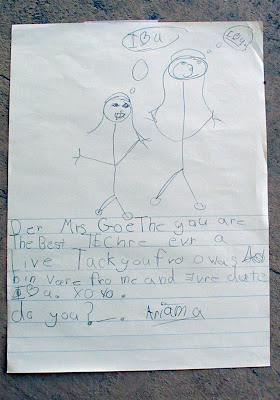 I ♡ u
Der Mrs. GoeThe you are
The Best TEChre evr a
Live Tack you fro owas
bin vare fro me and
I ♡ u. xo xo.
do you? __. Aniam a